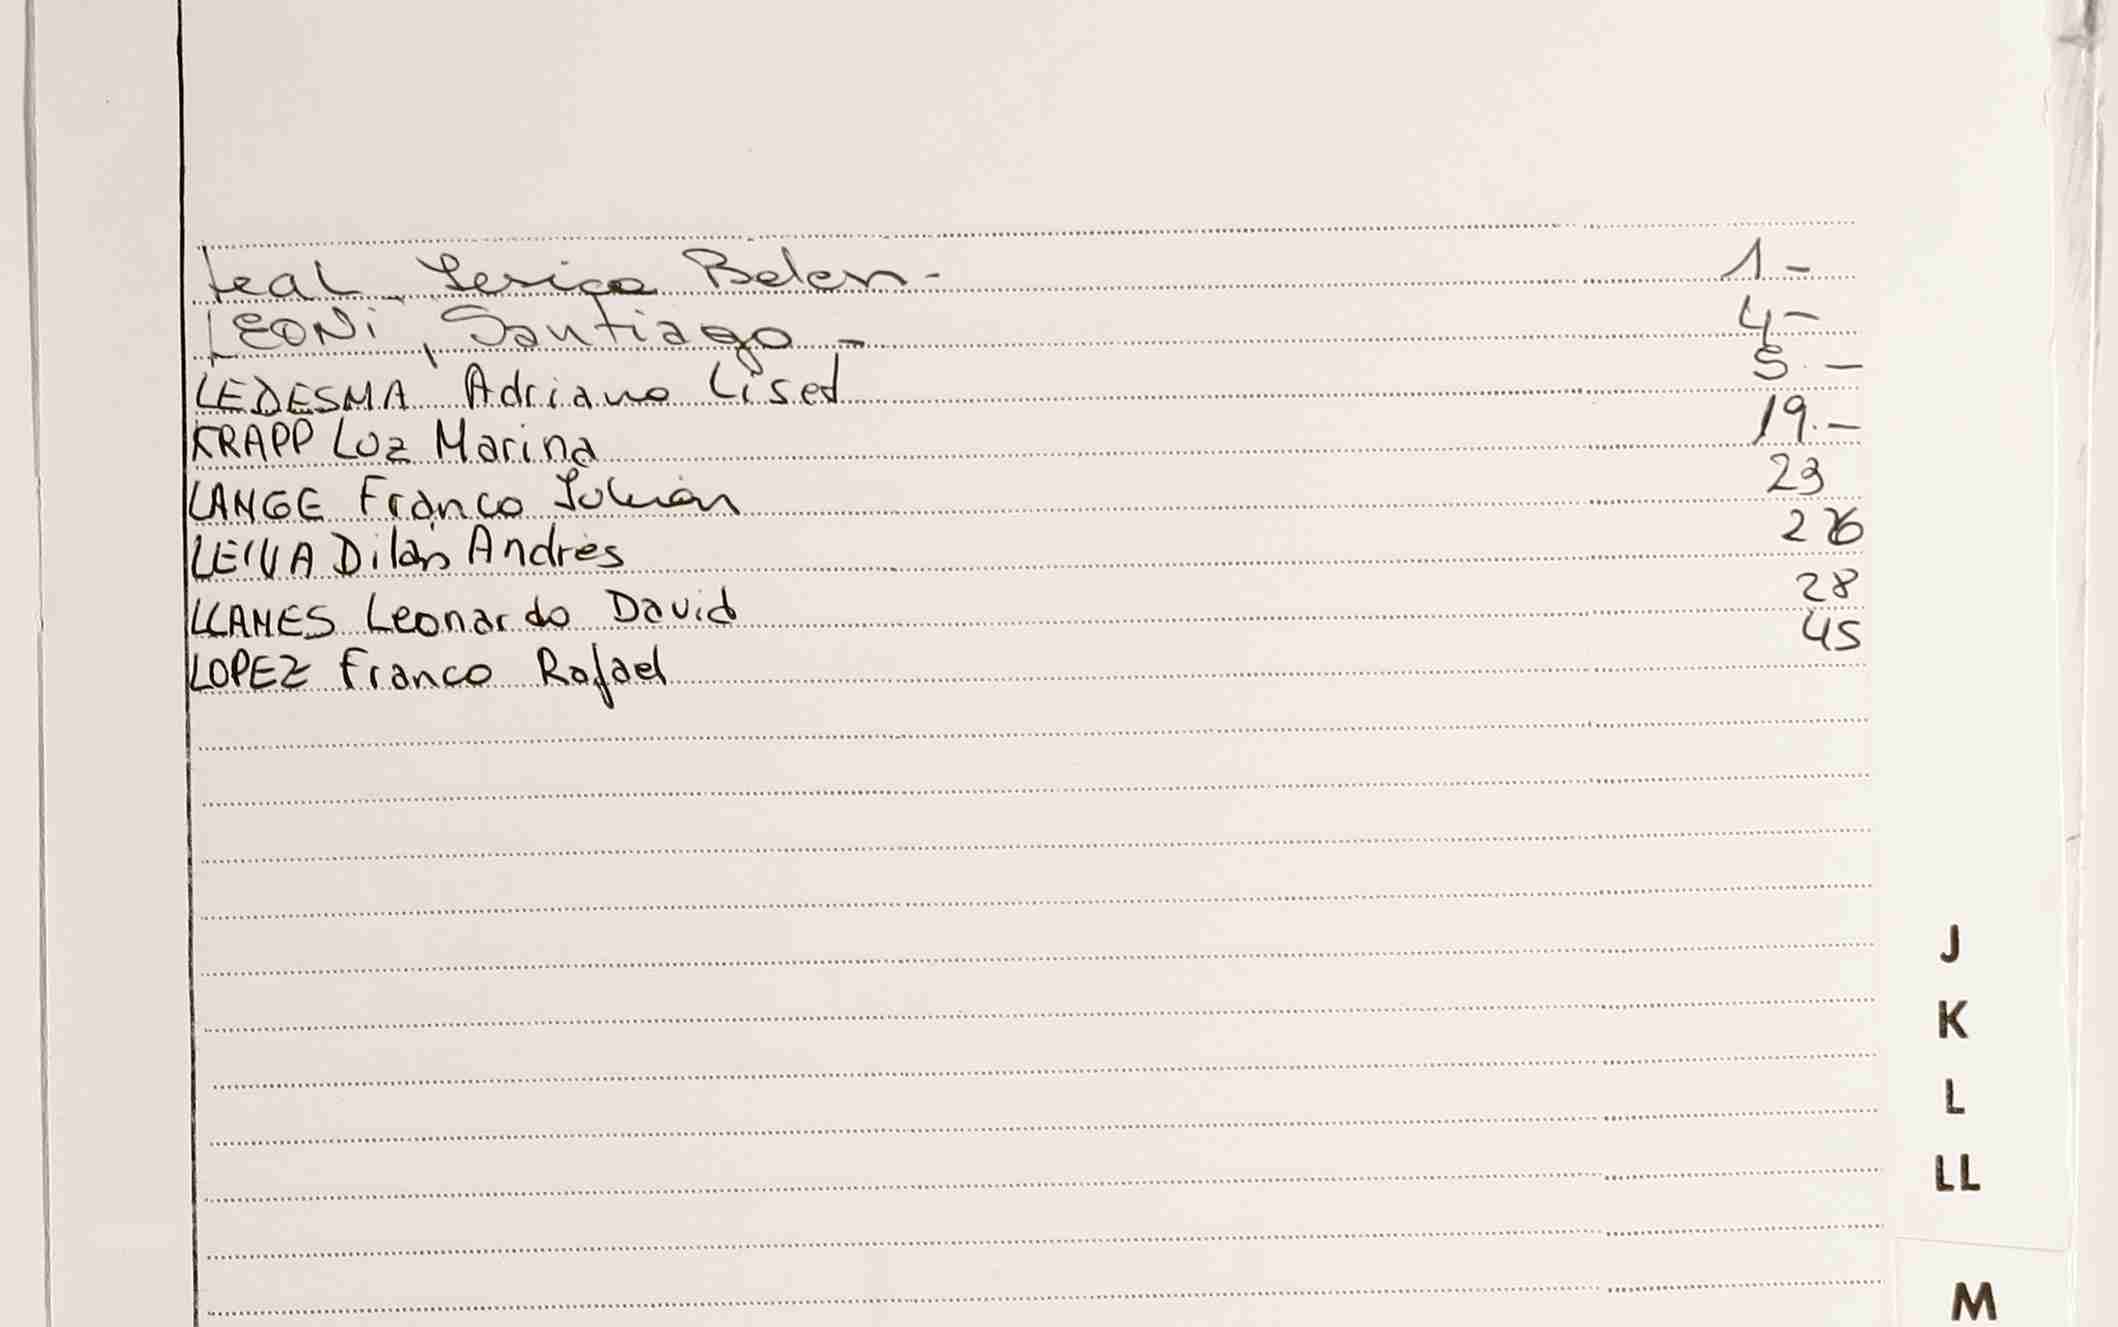 Leal Yesica Belen - 1 -
LEONi, Santiago - 4 -
LEDESMA Adriana Liset 5. -
KRAPP Luz Marina 19. -
LANGE Franco Julián 23
LEIVA Dilan Andrés 26
LLANES Leonardo David 28
LOPEZ Franco Rafael 45
J
K
L
LL
M